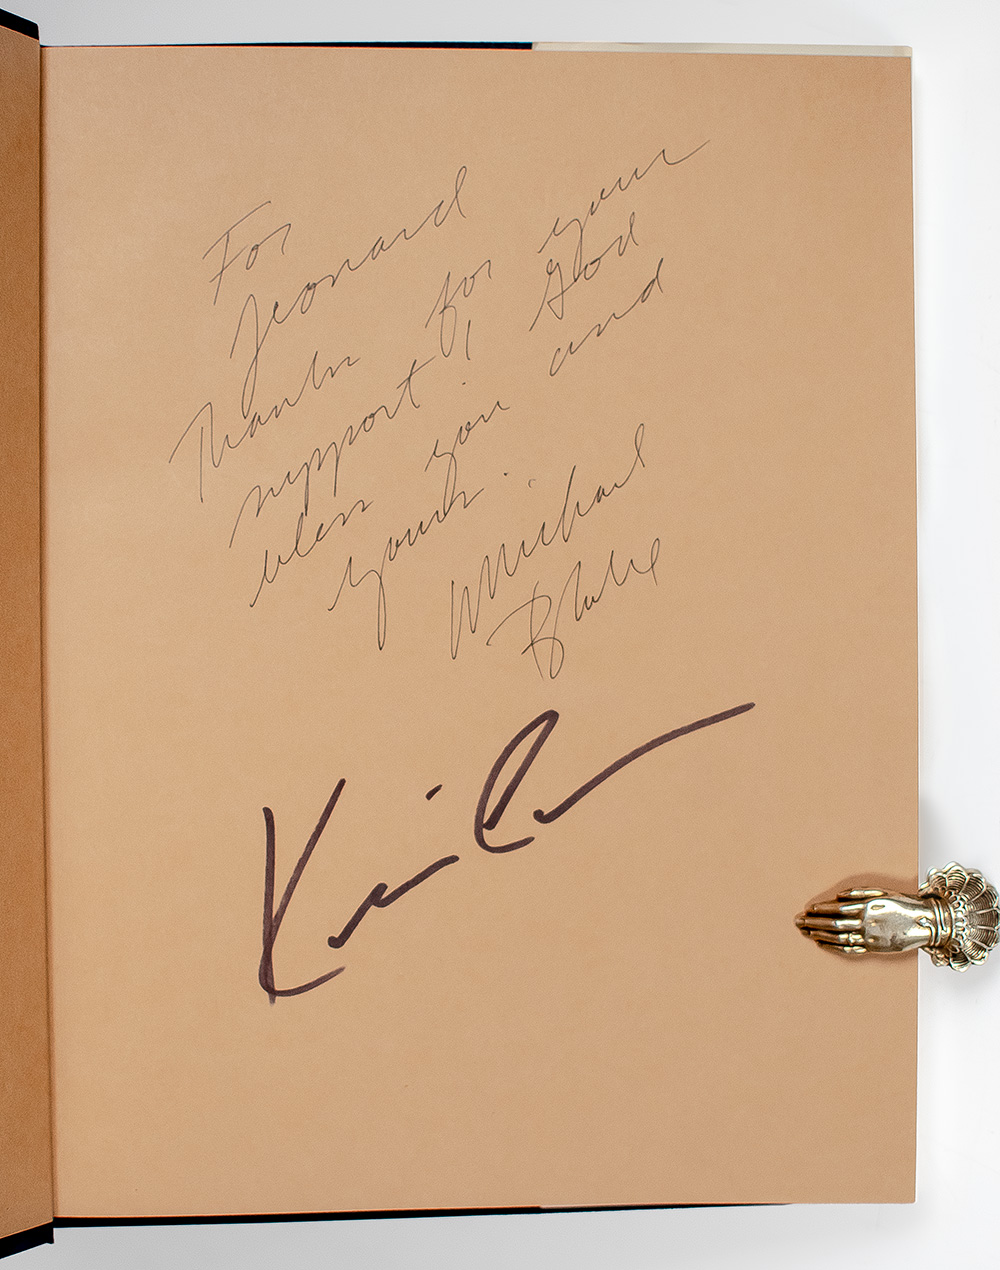 For
Leonard
Thanks for your
support! God
bless you and
yours.
Michael
Blake